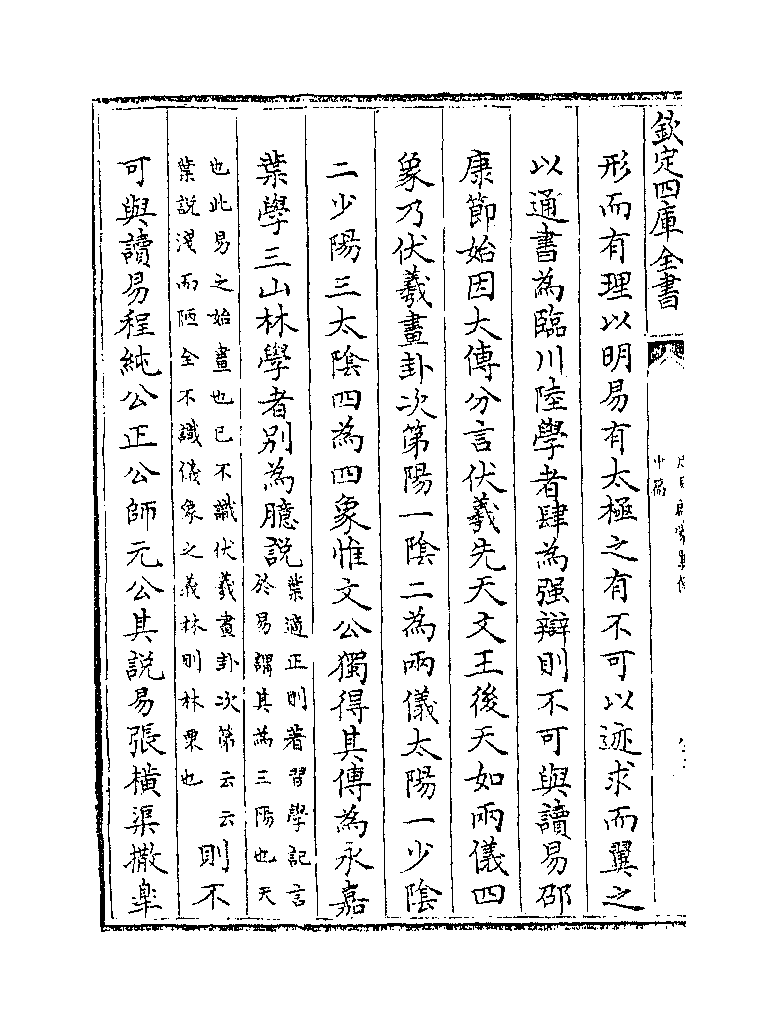 欽定四庫全書
中篇
形而有理以明易有太極之有不可以迹求而翼之
以通書為臨川陸學者肆為强辯則不可與讀易邵
康節始因大傳分言伏羲先天文王後天如兩儀四
象乃伏羲畫卦次第陽一陰二為兩儀太陽一少陰
二少陽三太陰四為四象惟文公獨得其傳為永嘉
葉學三山林學者别為臆說葉適正則著習學記言於易謂其為三陽也天
也此易之始畫也已不識伏羲畫卦次第云云葉説淺而陋全不識儀象之義林則林栗也則不
可與讀易程純公正公師元公其説易張橫渠撤臯